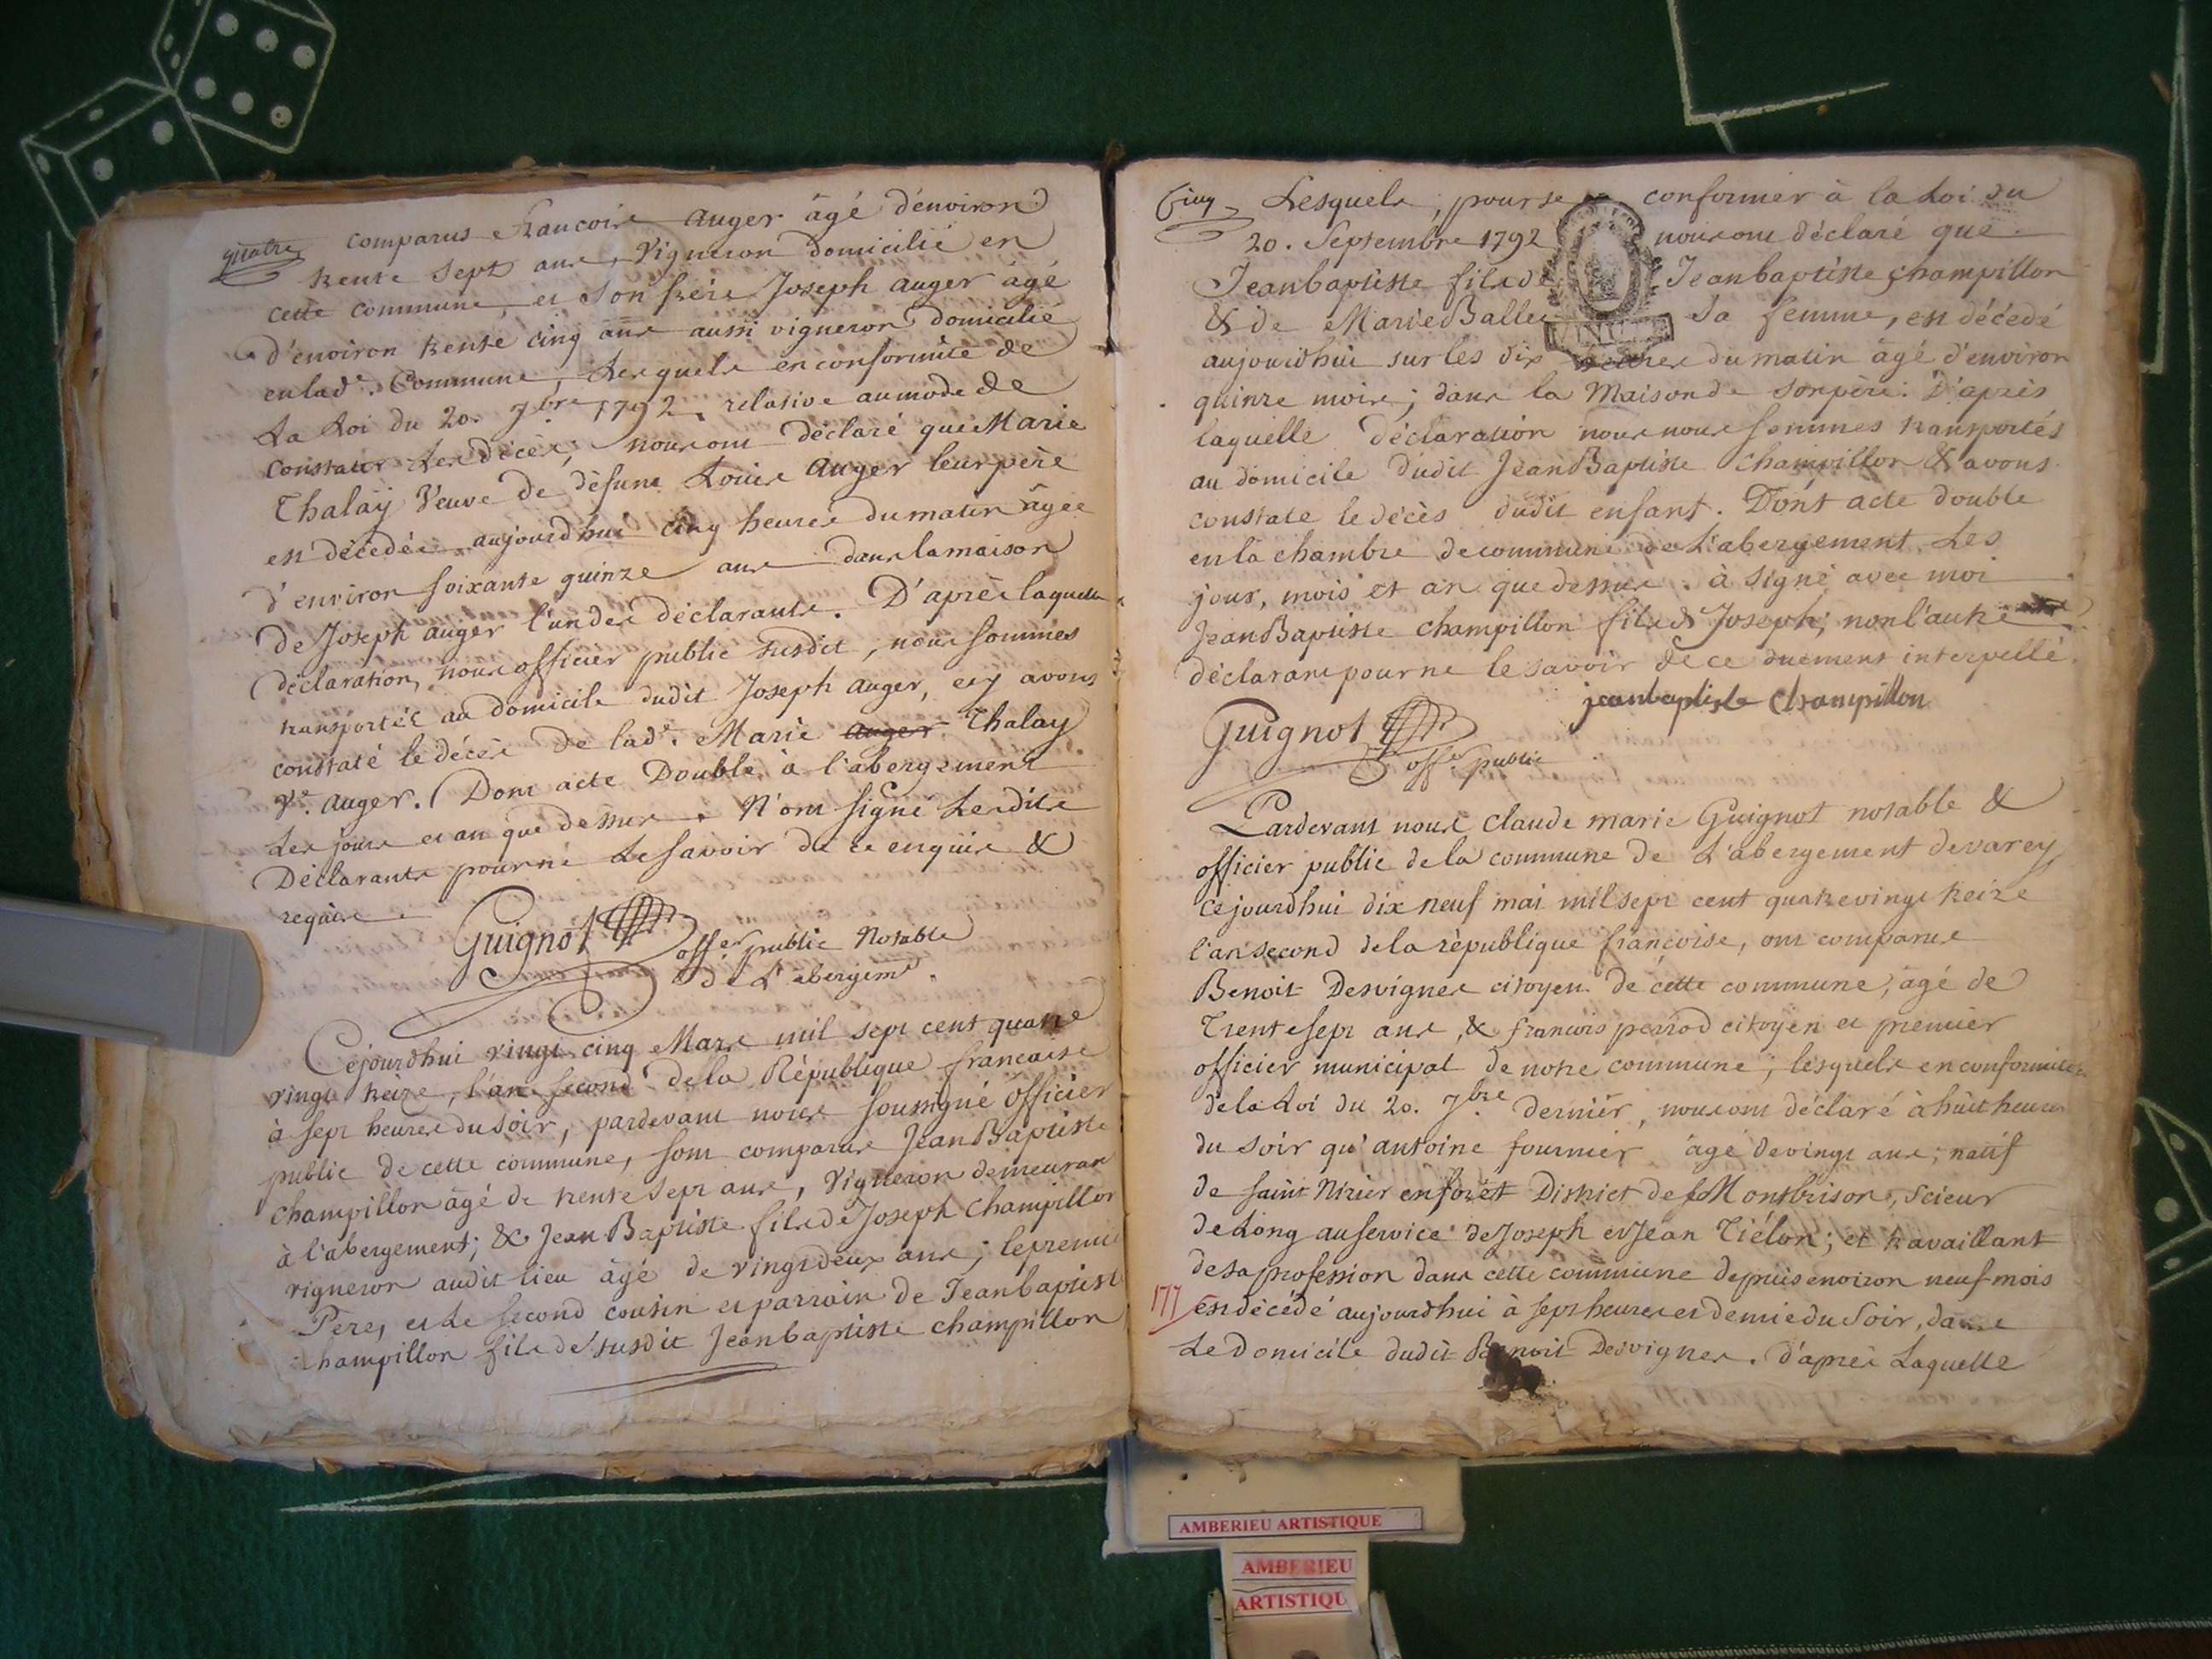 quatre
comparus francois auger âgé d'environ
trente sept ans, vigneron domicilié en
cette commune, et son frère Joseph auger âgé
d'environ trente cinq ans aussi vigneron domicilié
en lade. Commune, Lesquels en conformité de
La Loi du 20. 7bre 1792. relative au mode de
constater Les décès, nous ont déclaré que Marie
Thalay Veuve de défunt Louis auger leur père
est décédée aujourd'hui cinq heures du matin âgée
d'environ soixante quinze ans dans la maison
de Joseph auger l'un des déclarants. D'après laquelle
déclaration, nous officier public susdit, nous sommes
transporté au domicile dudit Joseph auger, et y avons
constaté le décès de lade. Marie auger Thalay
Ve. auger. Dont acte Double à l'abergement
Les jours et an que dessus. N'ont signé Lesdits
Déclarants pour ne Le savoir de ce enquis &
requis.
Guignot offer public Notable
de L'abergemt.
Cejourdhui vingt cinq Mars mil sept cent quatre
vingt treize, l'an second de la République francaise
à sept heures du soir, pardevant nous soussigné officier
public de cette commune, sont comparus Jean Baptiste
champillon âgé de trente sept ans, vigneron demeurant
à l'abergement; & Jean Baptiste fils de Joseph champillon
vigneron audit lieu âgé de vingt deux ans; le premier
Pere, et Le second cousin et parrain de Jean baptiste
champillon fils de susdit Jean baptiste champillon
Cinq
Lesquels, pour se conformer à la Loi du
20. Septembre 1792 nous ont déclaré que
Jean baptiste fils de Jean baptiste champillon
& de Marie Ballet sa femme, est décédé
aujourdhui sur les dix heures du matin âgé d'environ
quinze mois; dans la Maison de son père. D'après
laquelle déclaration nous nous sommes transportés
au domicile dudit Jean Baptiste champillon & avons
constaté le décès dudit enfant. Dont acte double
en la chambre de commune de L'abergement Les
jour, mois et an que dessus. à signé avec moi
Jean Baptiste champillon fils de Joseph; non l'autre
déclarant pour ne le savoir de ce duement interpellé.
jeanbaptiste Champillon
Guignot
offer public
Pardevant nous claude marie Guignot notable &
officier public de la commune de L'abergement de varey
cejourdhui dix neuf mai mil sept cent quatre vingt treize
l'an second de la république françoise, ont comparus
Benoit Desvignes citoyen de cette commune, âgé de
Trente sept ans, & francois perrod citoyen et premier
officier municipal de notre commune; lesquels en conformité
de la Loi du 20. 7bre dernier, nous ont déclaré à huit heures
du soir qu'antoine fournier âgé de vingt ans; natif
de saint Nizier en forêt District de Montbrison, scieur
de Long au service de Joseph et Jean Tiélon; et travaillant
de sa profession dans cette commune depuis environ neuf mois
177 est décédé aujourdhui à sept heures et demie du soir, dans
Le Domicile dudit Benoit Desvignes. d'après Laquelle
AMBERIEU ARTISTIQUE
AMBERIEU
ARTISTIQU